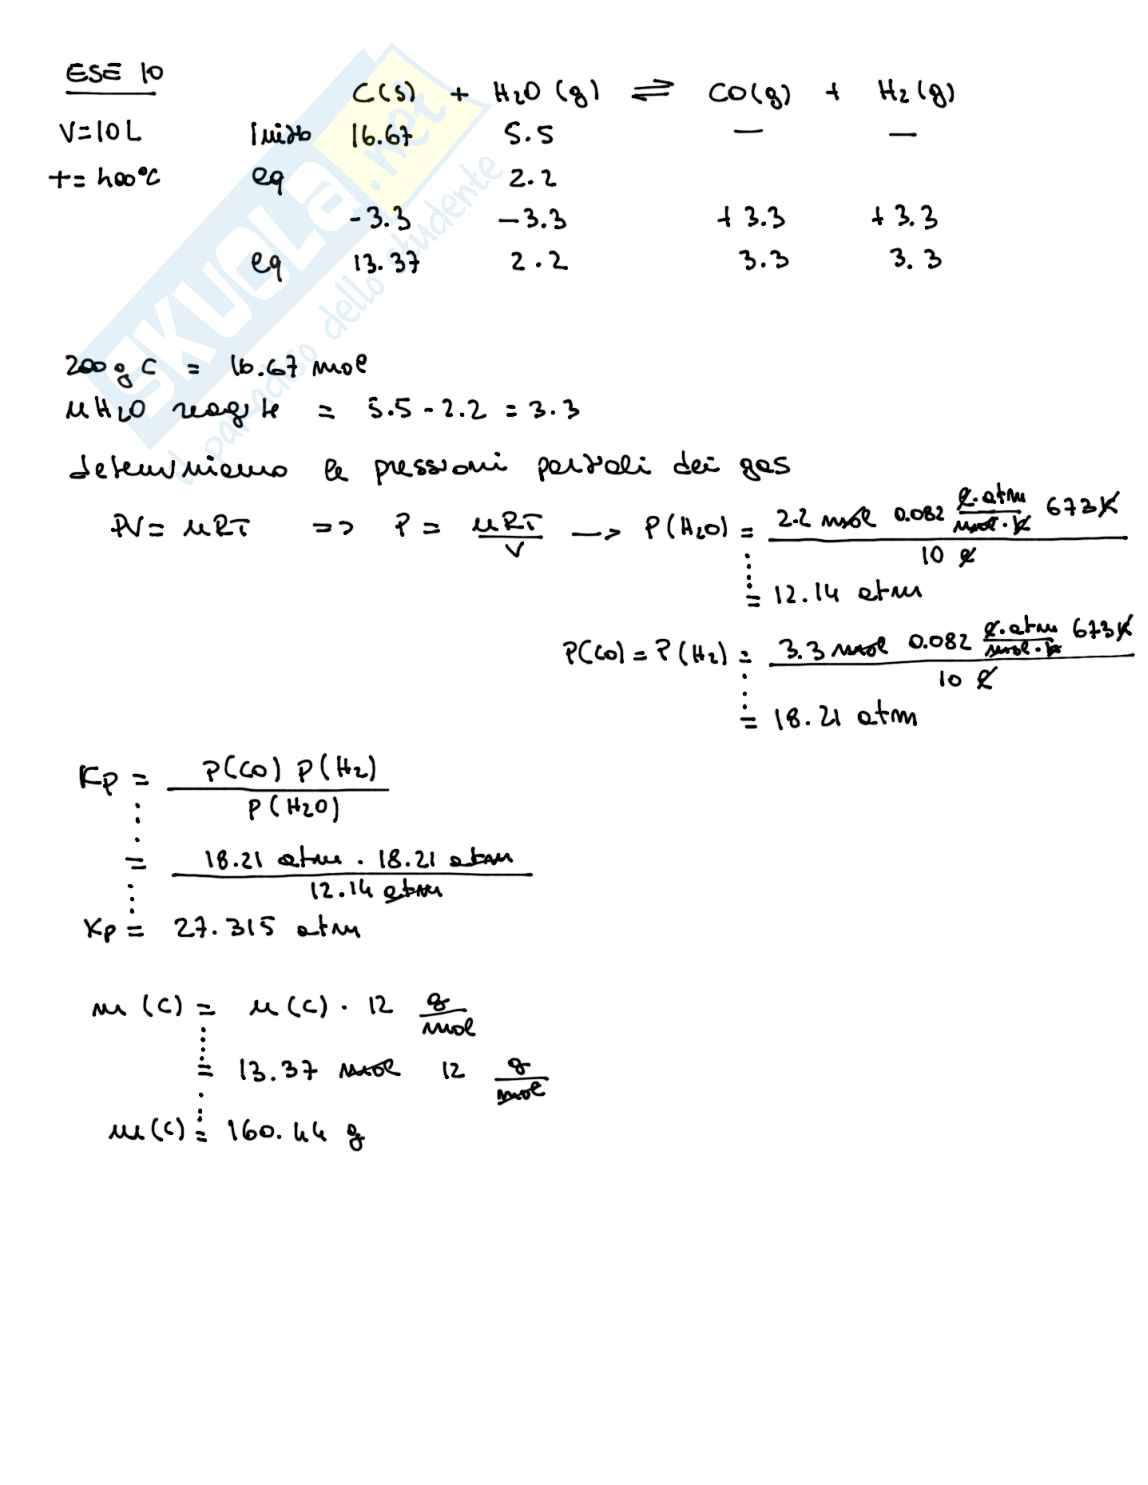 ESE 10
C(s) + H2O (g) ⇌ CO(g) + H2(g)
V=10L Inizio 16.67 5.5 — —
T= 400°C eq 2.2
-3.3 -3.3 +3.3 +3.3
eq 13.37 2.2 3.3 3.3
200 g C = 16.67 mol
n H2O reagite = 5.5 - 2.2 = 3.3
determiniamo le pressioni parziali dei gas
PV= nRT => P = nRT/V -> P(H2O) = 2.2 mol 0.082 ℓ·atm/mol·K 673K / 10 ℓ
= 12.14 atm
P(CO) = P(H2) = 3.3 mol 0.082 ℓ·atm/mol·K 673K / 10 ℓ
= 18.21 atm
Kp = P(CO) P(H2) / P(H2O)
= 18.21 atm · 18.21 atm / 12.14 atm
Kp = 27.315 atm
m (C) = n (C) · 12 g/mol
= 13.37 mol 12 g/mol
m(C) = 160.44 g
SKUOLA.net
il paradiso dello studente